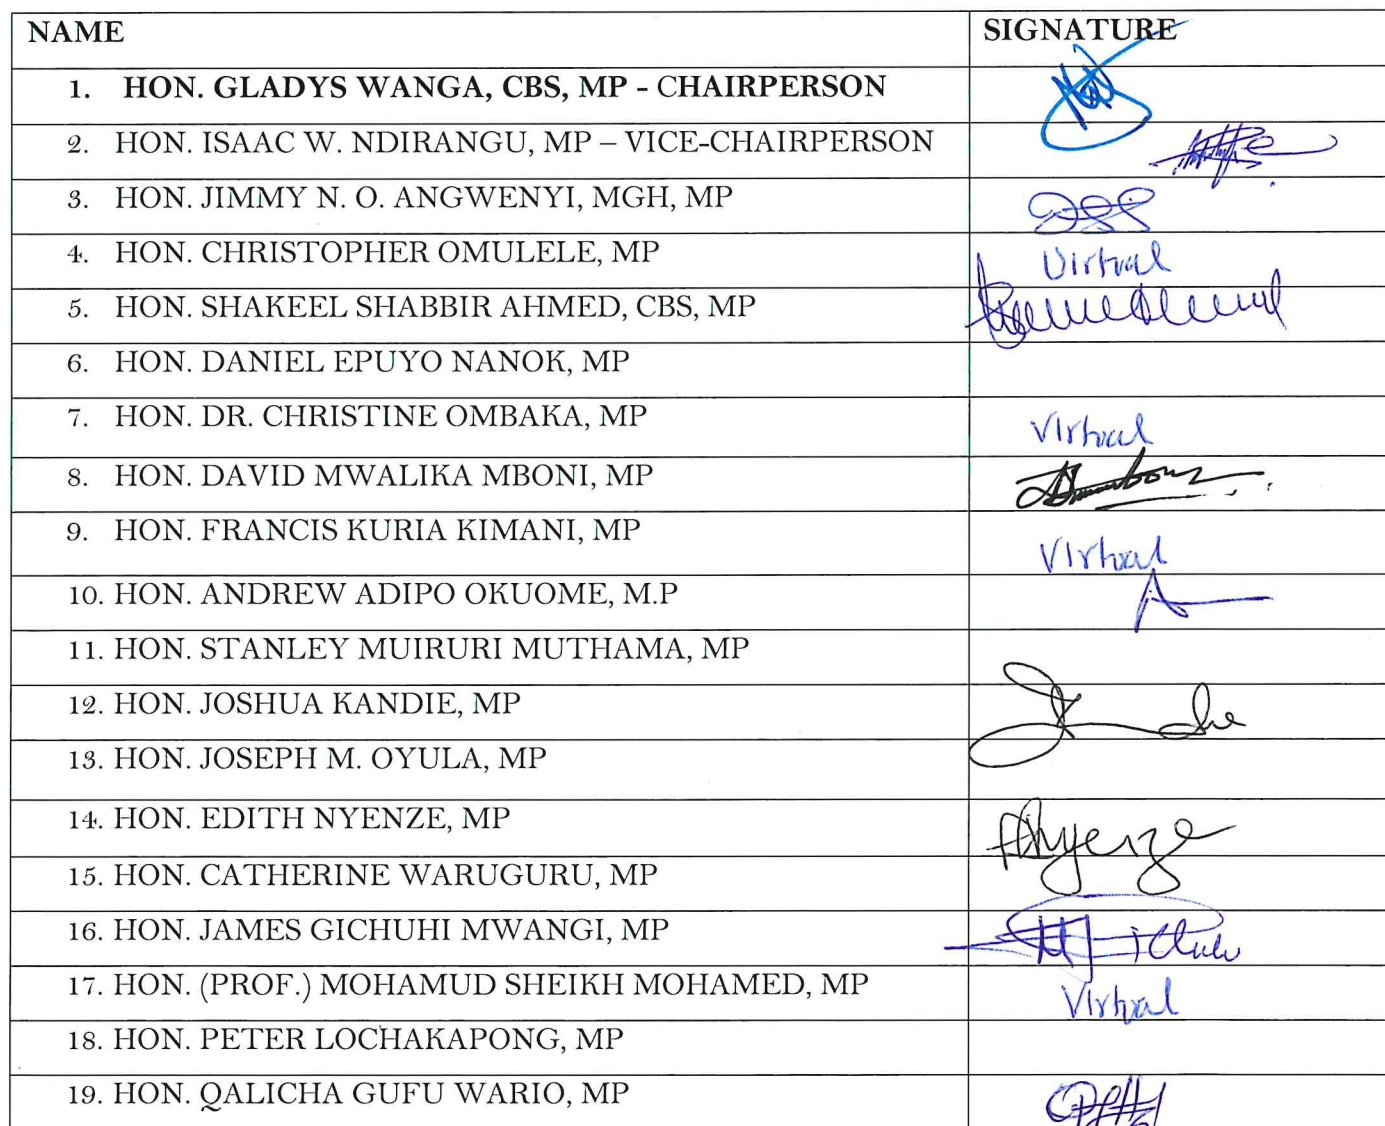 NAME SIGNATURE
1. HON. GLADYS WANGA, CBS, MP - CHAIRPERSON
2. HON. ISAAC W. NDIRANGU, MP – VICE-CHAIRPERSON
3. HON. JIMMY N. O. ANGWENYI, MGH, MP
4. HON. CHRISTOPHER OMULELE, MP Virtual
5. HON. SHAKEEL SHABBIR AHMED, CBS, MP
6. HON. DANIEL EPUYO NANOK, MP
7. HON. DR. CHRISTINE OMBAKA, MP Virtual
8. HON. DAVID MWALIKA MBONI, MP
9. HON. FRANCIS KURIA KIMANI, MP Virtual
10. HON. ANDREW ADIPO OKUOME, M.P
11. HON. STANLEY MUIRURI MUTHAMA, MP
12. HON. JOSHUA KANDIE, MP
13. HON. JOSEPH M. OYULA, MP
14. HON. EDITH NYENZE, MP
15. HON. CATHERINE WARUGURU, MP
16. HON. JAMES GICHUHI MWANGI, MP
17. HON. (PROF.) MOHAMUD SHEIKH MOHAMED, MP Virtual
18. HON. PETER LOCHAKAPONG, MP
19. HON. QALICHA GUFU WARIO, MP